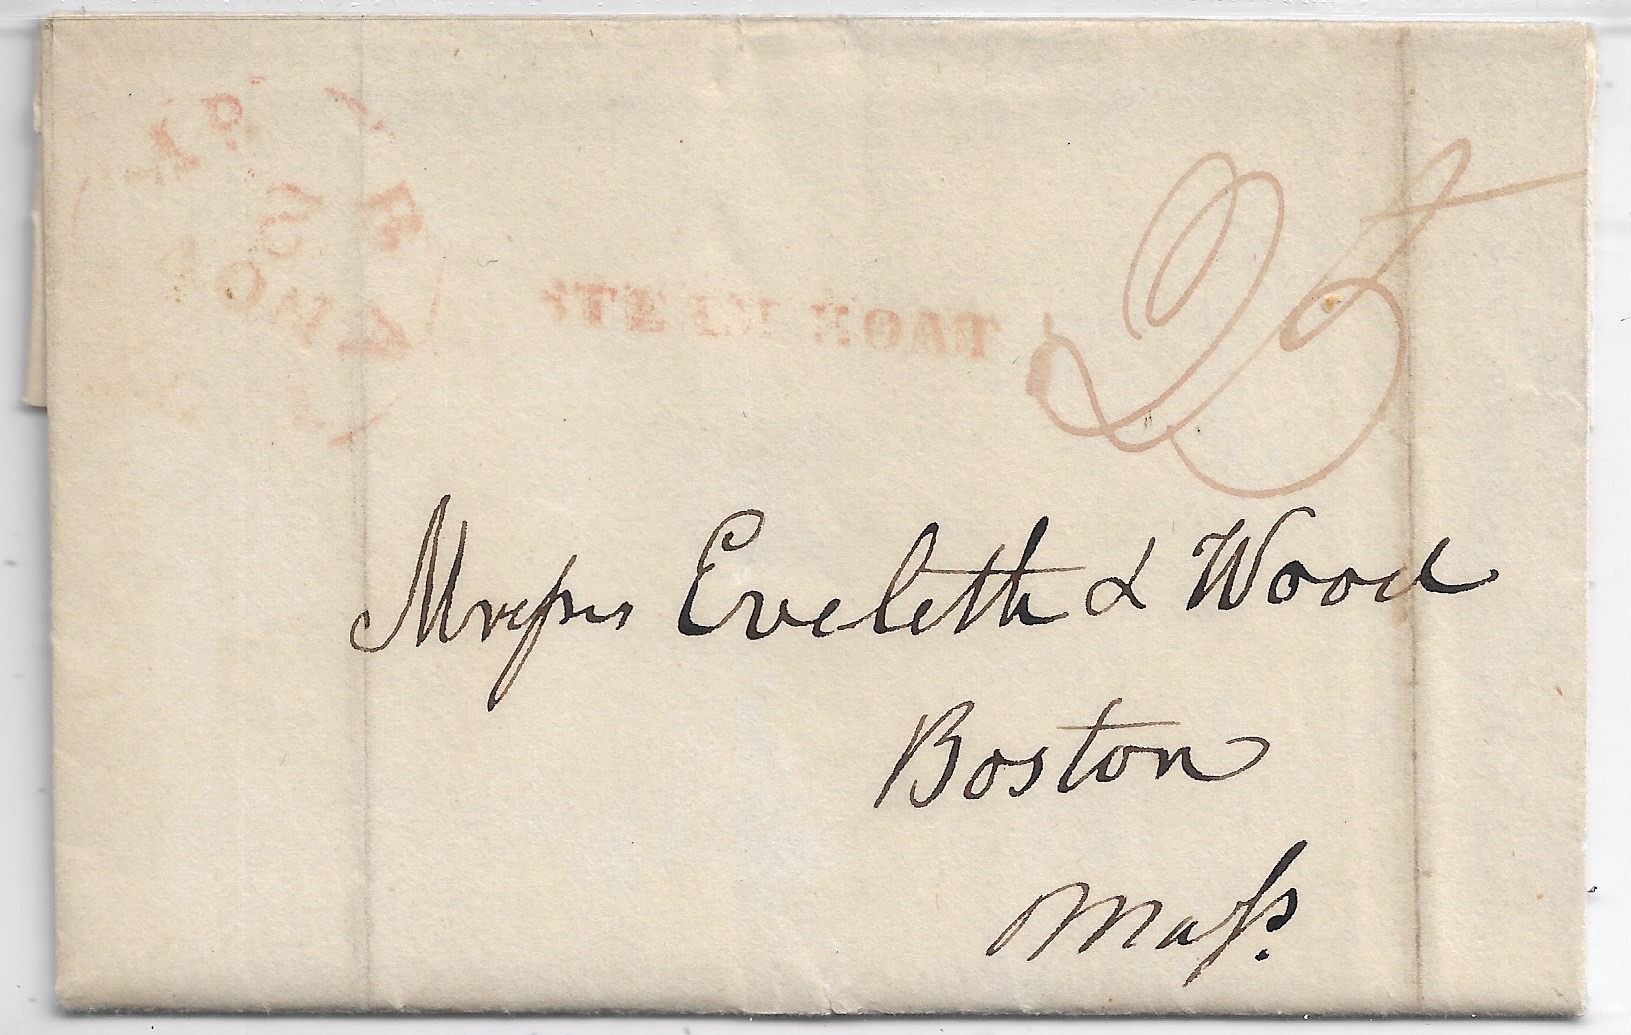 STEAM BOAT
25
Messrs Eveleth & Wood
Boston
Mass.